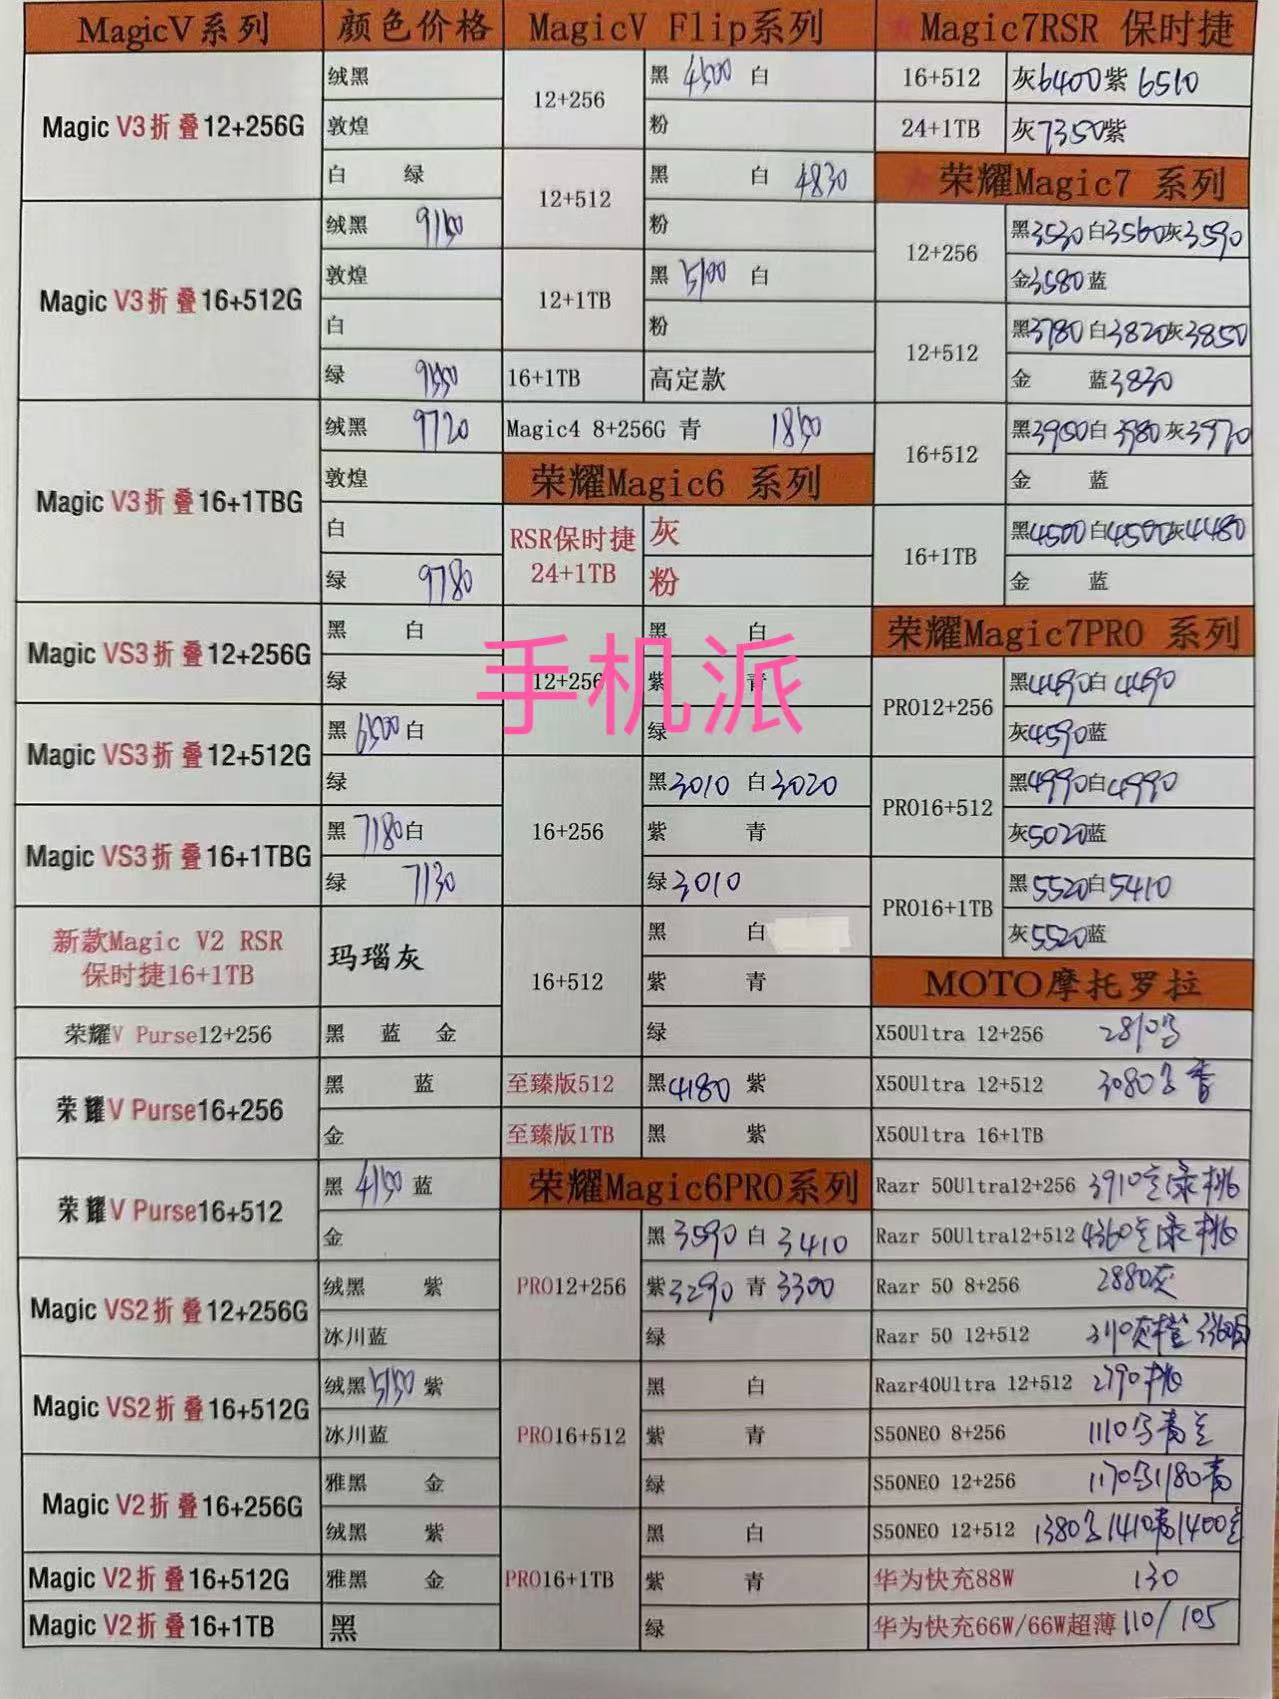 MagicV系列 颜色价格
Magic V3折叠12+256G 绒黑
敦煌
白 绿
Magic V3折叠16+512G 绒黑
敦煌
白
绿
Magic V3折叠16+1TBG 绒黑 9720
敦煌
白
绿 9780
Magic VS3折叠12+256G 黑 白
绿
Magic VS3折叠12+512G 黑 白
绿
Magic VS3折叠16+1TBG 黑7180白
绿 7130
新款Magic V2 RSR
保时捷16+1TB
玛瑙灰
荣耀V Purse12+256 黑 蓝 金
荣耀V Purse16+256 黑 蓝
金
荣耀V Purse16+512 黑 蓝
金
Magic VS2折叠12+256G 绒黑 紫
冰川蓝
Magic VS2折叠16+512G 绒黑 紫
冰川蓝
Magic V2折叠16+256G 雅黑 金
绒黑 紫
Magic V2折叠16+512G 雅黑 金
Magic V2折叠16+1TB 黑
MagicV Flip系列
12+256 黑 白
粉
12+512 黑 白 4830
粉
12+1TB 黑 5100 白
粉
16+1TB 高定款
Magic4 8+256G 青
荣耀Magic6 系列
RSR保时捷
24+1TB
灰
粉
12+256 黑 白
紫 青
绿
16+256 黑3010 白3020
紫 青
绿3010
16+512 黑 白
紫 青
绿
至臻版512 黑4180 紫
至臻版1TB 黑 紫
荣耀Magic6PRO系列
PRO12+256 黑3590 白3410
紫3290 青3300
绿
PRO16+512 黑 白
紫 青
绿
PRO16+1TB 黑 白
紫 青
绿
Magic7RSR 保时捷
16+512 灰6400紫6510
24+1TB 灰7350紫
荣耀Magic7 系列
12+256 黑3530白3560灰3590
金3580蓝
12+512 黑3780白3820灰3850
金 蓝3830
16+512 黑3950白3980灰3970
金 蓝
16+1TB 黑4500白4500灰4480
金 蓝
荣耀Magic7PRO 系列
PRO12+256 黑4490白4490
灰4590蓝
PRO16+512 黑4990白4990
灰5020蓝
PRO16+1TB 黑5520白5410
灰5520蓝
MOTO摩托罗拉
X50Ultra 12+256
X50Ultra 12+512 3080
X50Ultra 16+1TB
Razr 50Ultra12+256 3910
Razr 50Ultra12+512 4360
Razr 50 8+256 2880灰
Razr 50 12+512
Razr40Ultra 12+512 2790桃
S50NEO 8+256 1110
S50NEO 12+256 1170 1180
S50NEO 12+512 1380 1410 1400
华为快充88W 130
华为快充66W/66W超薄 110/105
手机派